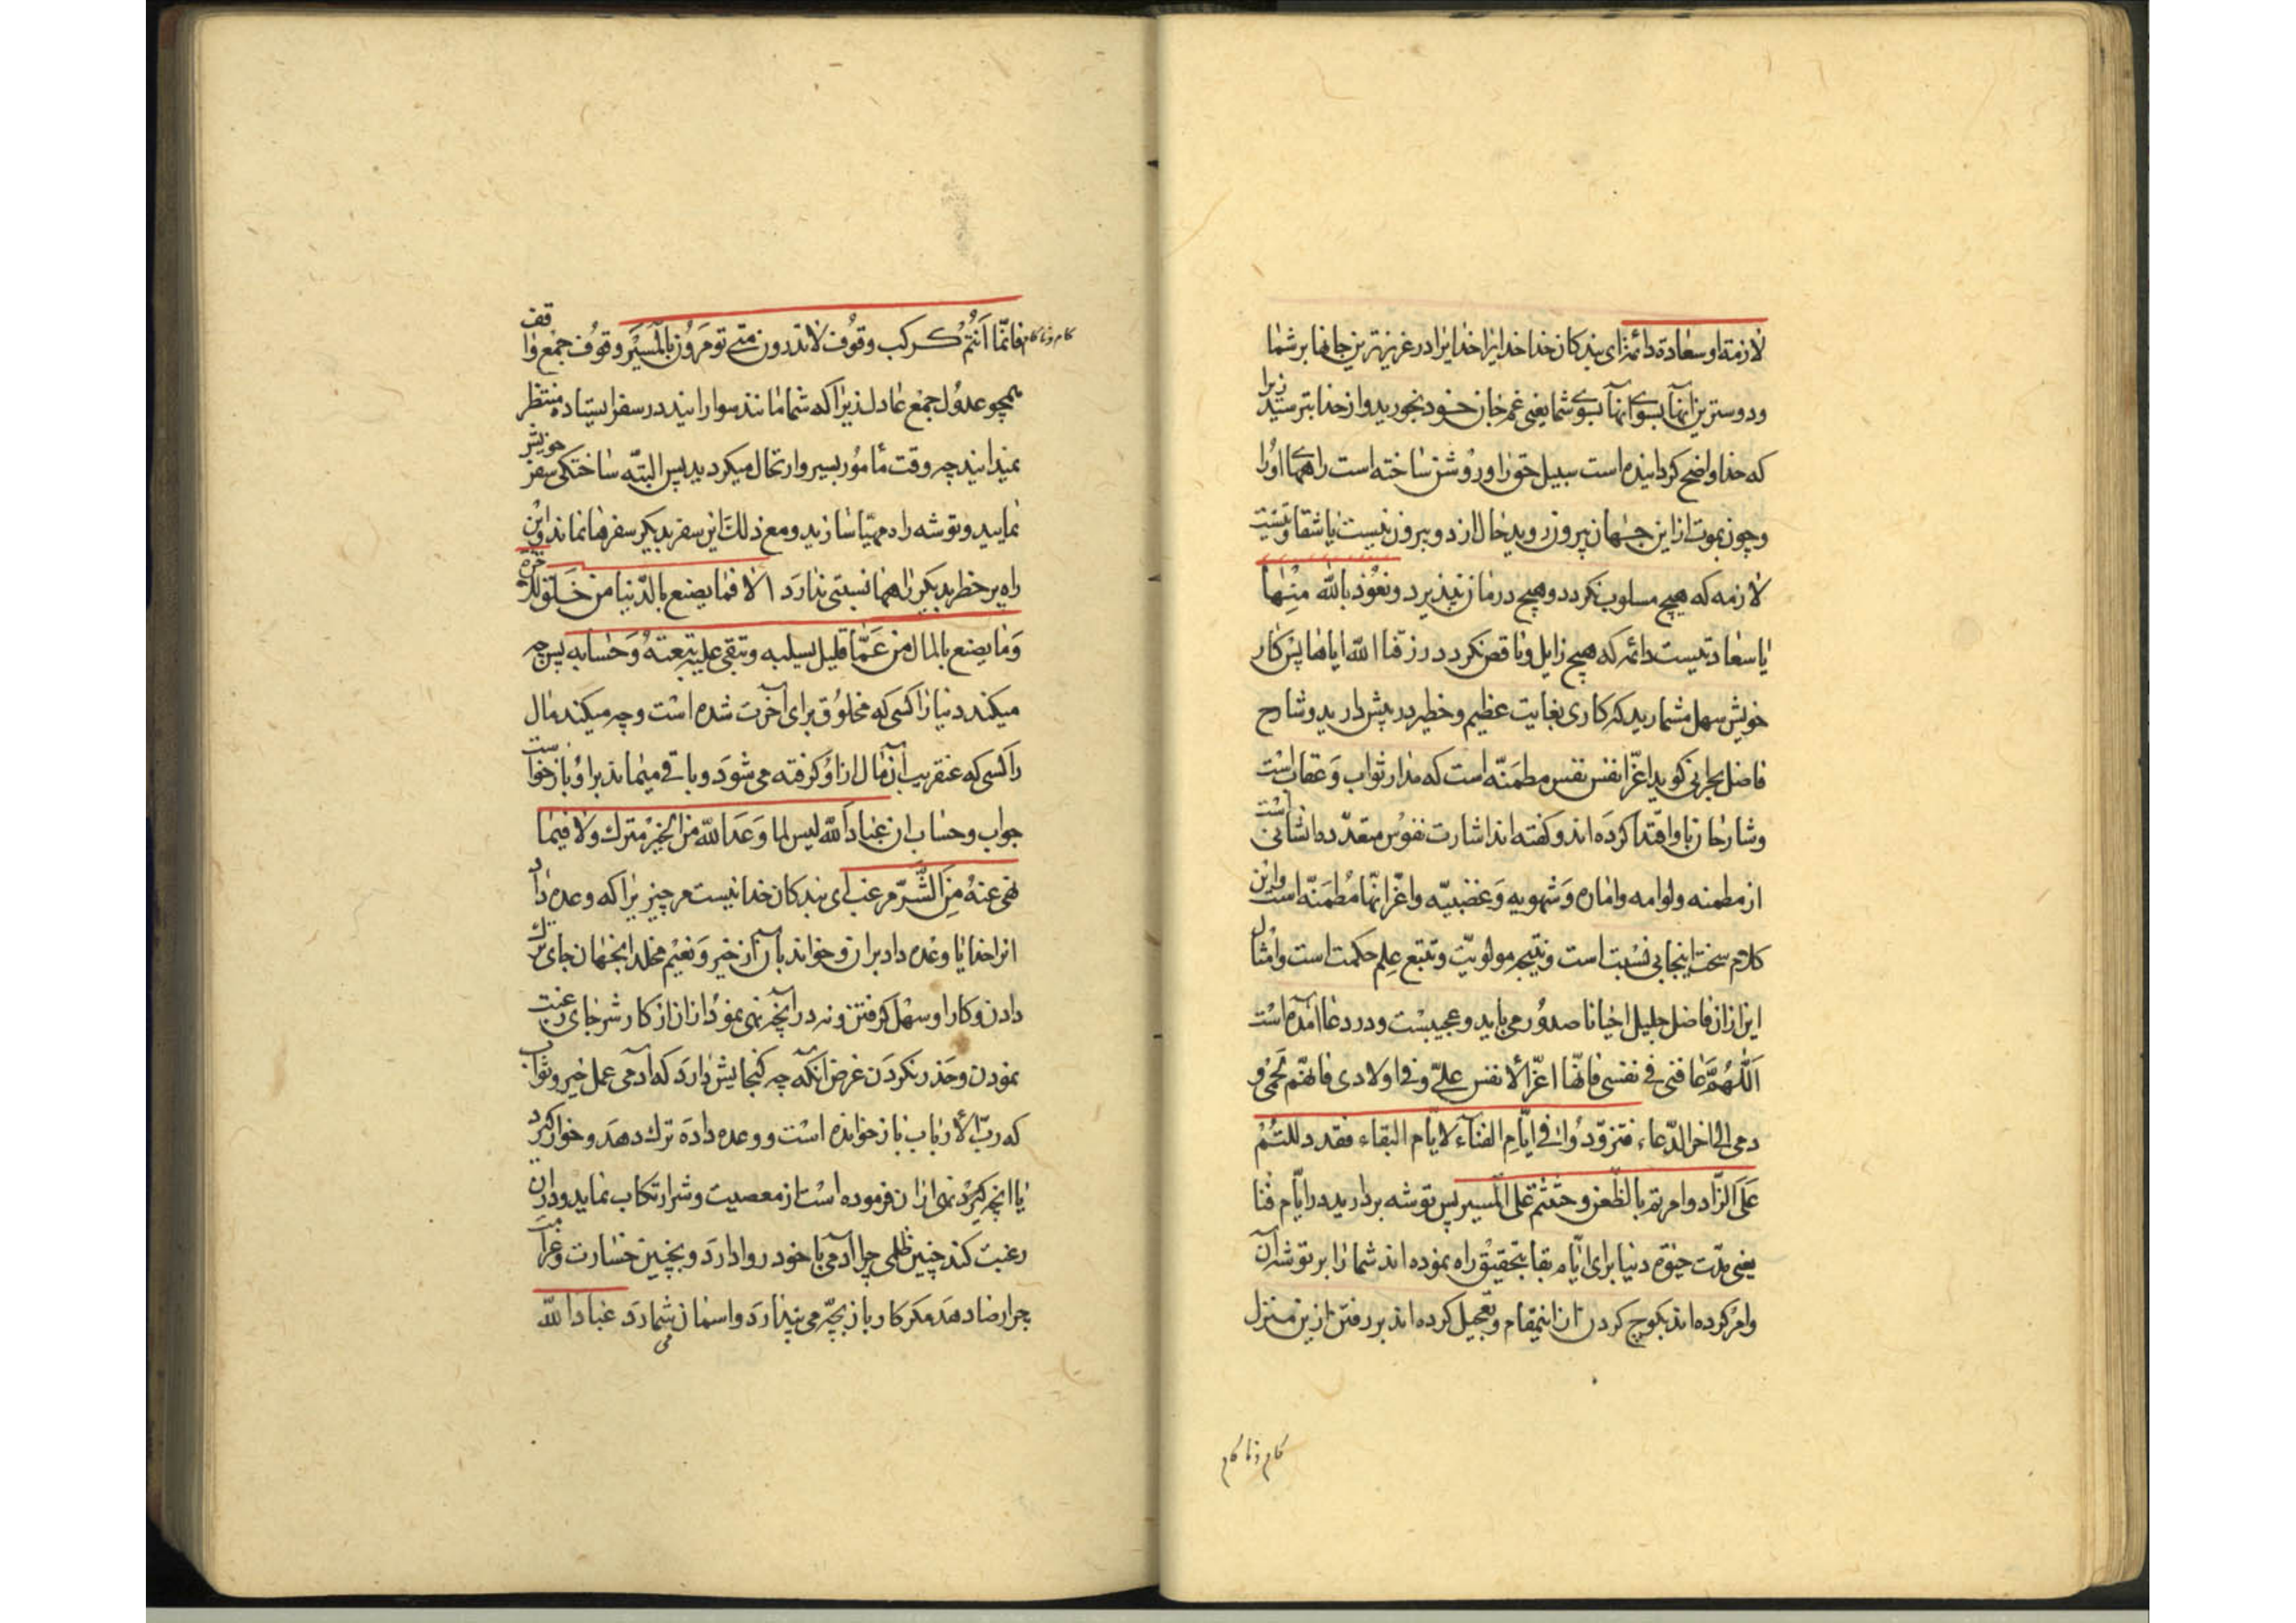 لازمة او سعادة دائمة ای بندکان خدا خدایرا خدایرا در عزیزترین جانها بر شما
ودوسترین انها بسوی انها بسوی شما یعنی غم جان خود بخورید واز خدا بترسید زیرا
که خدا واضح کردانیده است سبیل حق را وروشن ساخته است راههای اورا
وچون بموت از این جهان بیرون روید حال از دو بیرون نیست یا شقاوتیست
لازمه که هیچ مسلوب نکردد وهیچ درمان نپذیرد ونعوذ بالله منها
یا سعادتیست دائمه که هیچ زایل وناقص نکردد رزقنا الله ایاها پس کار
خویش سهل مشمارید که کاری بغایت عظیم وخطیر در پیش دارید وشارح
فاضل بحرانی کوید اعز انفس نفس مطمئنه است که مدار ثواب وعقاب است
وشارحان باو اقتدا کرده اند وکفته اند اشارت نفوس متعدده انسانی است
از مطمئنه ولوامه واماره وشهویه وغضبیه واعز انها مطمئنه است واین
کلام سخت اینجا بی نسبت است ونتیجه مولویت وتتبع علم حکمت است وامثال
این ازان فاضل جلیل احیانا صدور می یابد وعجیبست ودر دعا آمده است
اللهم عافنی فی نفسی فانها اعز الأنفس علی وفی اولادی فانهم لحمی و
دمی الی اخر الدعاء فتزودوا فی ایام الفنآء لایام البقاء فقد دللتم
علی الزاد وامرتم بالظعن وحثثتم علی المسیر پس توشه بردارید در ایام فنا
یعنی مدت حیوة دنیا برای ایام بقا بتحقیق راه نموده اند شما را بر توشه آن
وامر کرده اند بکوچ کردن از اینمقام وتعجیل کرده اند بر رفتن ازین منزل
کام وناکام
کام وناکام فانما انتم کرکب وقوف لاتدرون متی تومرون بالمسیر وقوف جمع واقف
همچو عدول جمع عادل زیرا که شما مانند سوارانید در سفر ایستاده منتظر
نمیدانید چه وقت مأمور بسیر وارتحال میکردید پس البته ساختکی سفر خویش
نمایید وتوشه راه مهیا سازید ومع ذلک این سفر بدیکر سفرها نماند واین
راه پر خطر بدیکر راهها نسبتی ندارد الا فما یصنع بالدنیا من خلق للاخرة
وما یصنع بالمال من عما قلیل یسلبه وتبقی علیه تبعته وحسابه پس چه
میکند دنیا را کسی که مخلوق برای آخرت شده است وچه میکند مال
را کسی که عنقریب آن مال ازاو کرفته می شود وباقی میماند براو بازخواست
جواب وحساب ان عباد الله لیس لما وعد الله من الخیر مترک ولا فیما
نهی عنه من الشر مرغب ای بندکان خدا نیست مر چیزیرا که وعده داد
انرا خدا یا وعده داد بران وخواند بآن از خیر ونعیم مخلد انجهان جای ترک
دادن وکار او سهل کرفتن ونه در آنچه نهی نمود ازان از کار شر جای رغبت
نمودن وحذر نکردن غرض آنکه چه کنجایش دارد که آدمی عمل خیر وثواب
که رب الأرباب بان خوانده است ووعده داده ترک دهد وخوار کیرد
یا انچه نهی ازان فرموده است از معصیت وشر ارتکاب نماید ودران
رغبت کند چنین ظلمی چرا آدمی با خود روا دارد وبچنین خسارت وغرامت
چرا رضا دهد مکر کار بازیچه می پندارد واسان می شمارد عباد الله